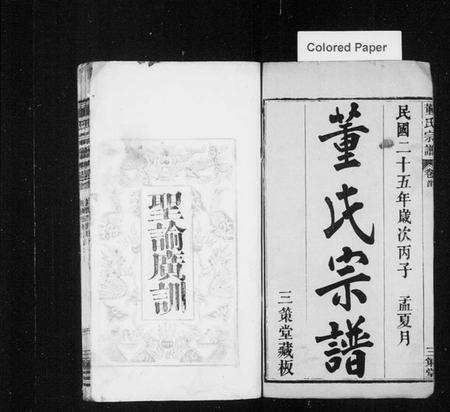 Colored Paper
董氏宗譜
民國二十五年歲次丙子 孟夏月
董氏宗譜
董氏宗譜
三策堂藏板
三策堂
聖諭廣訓